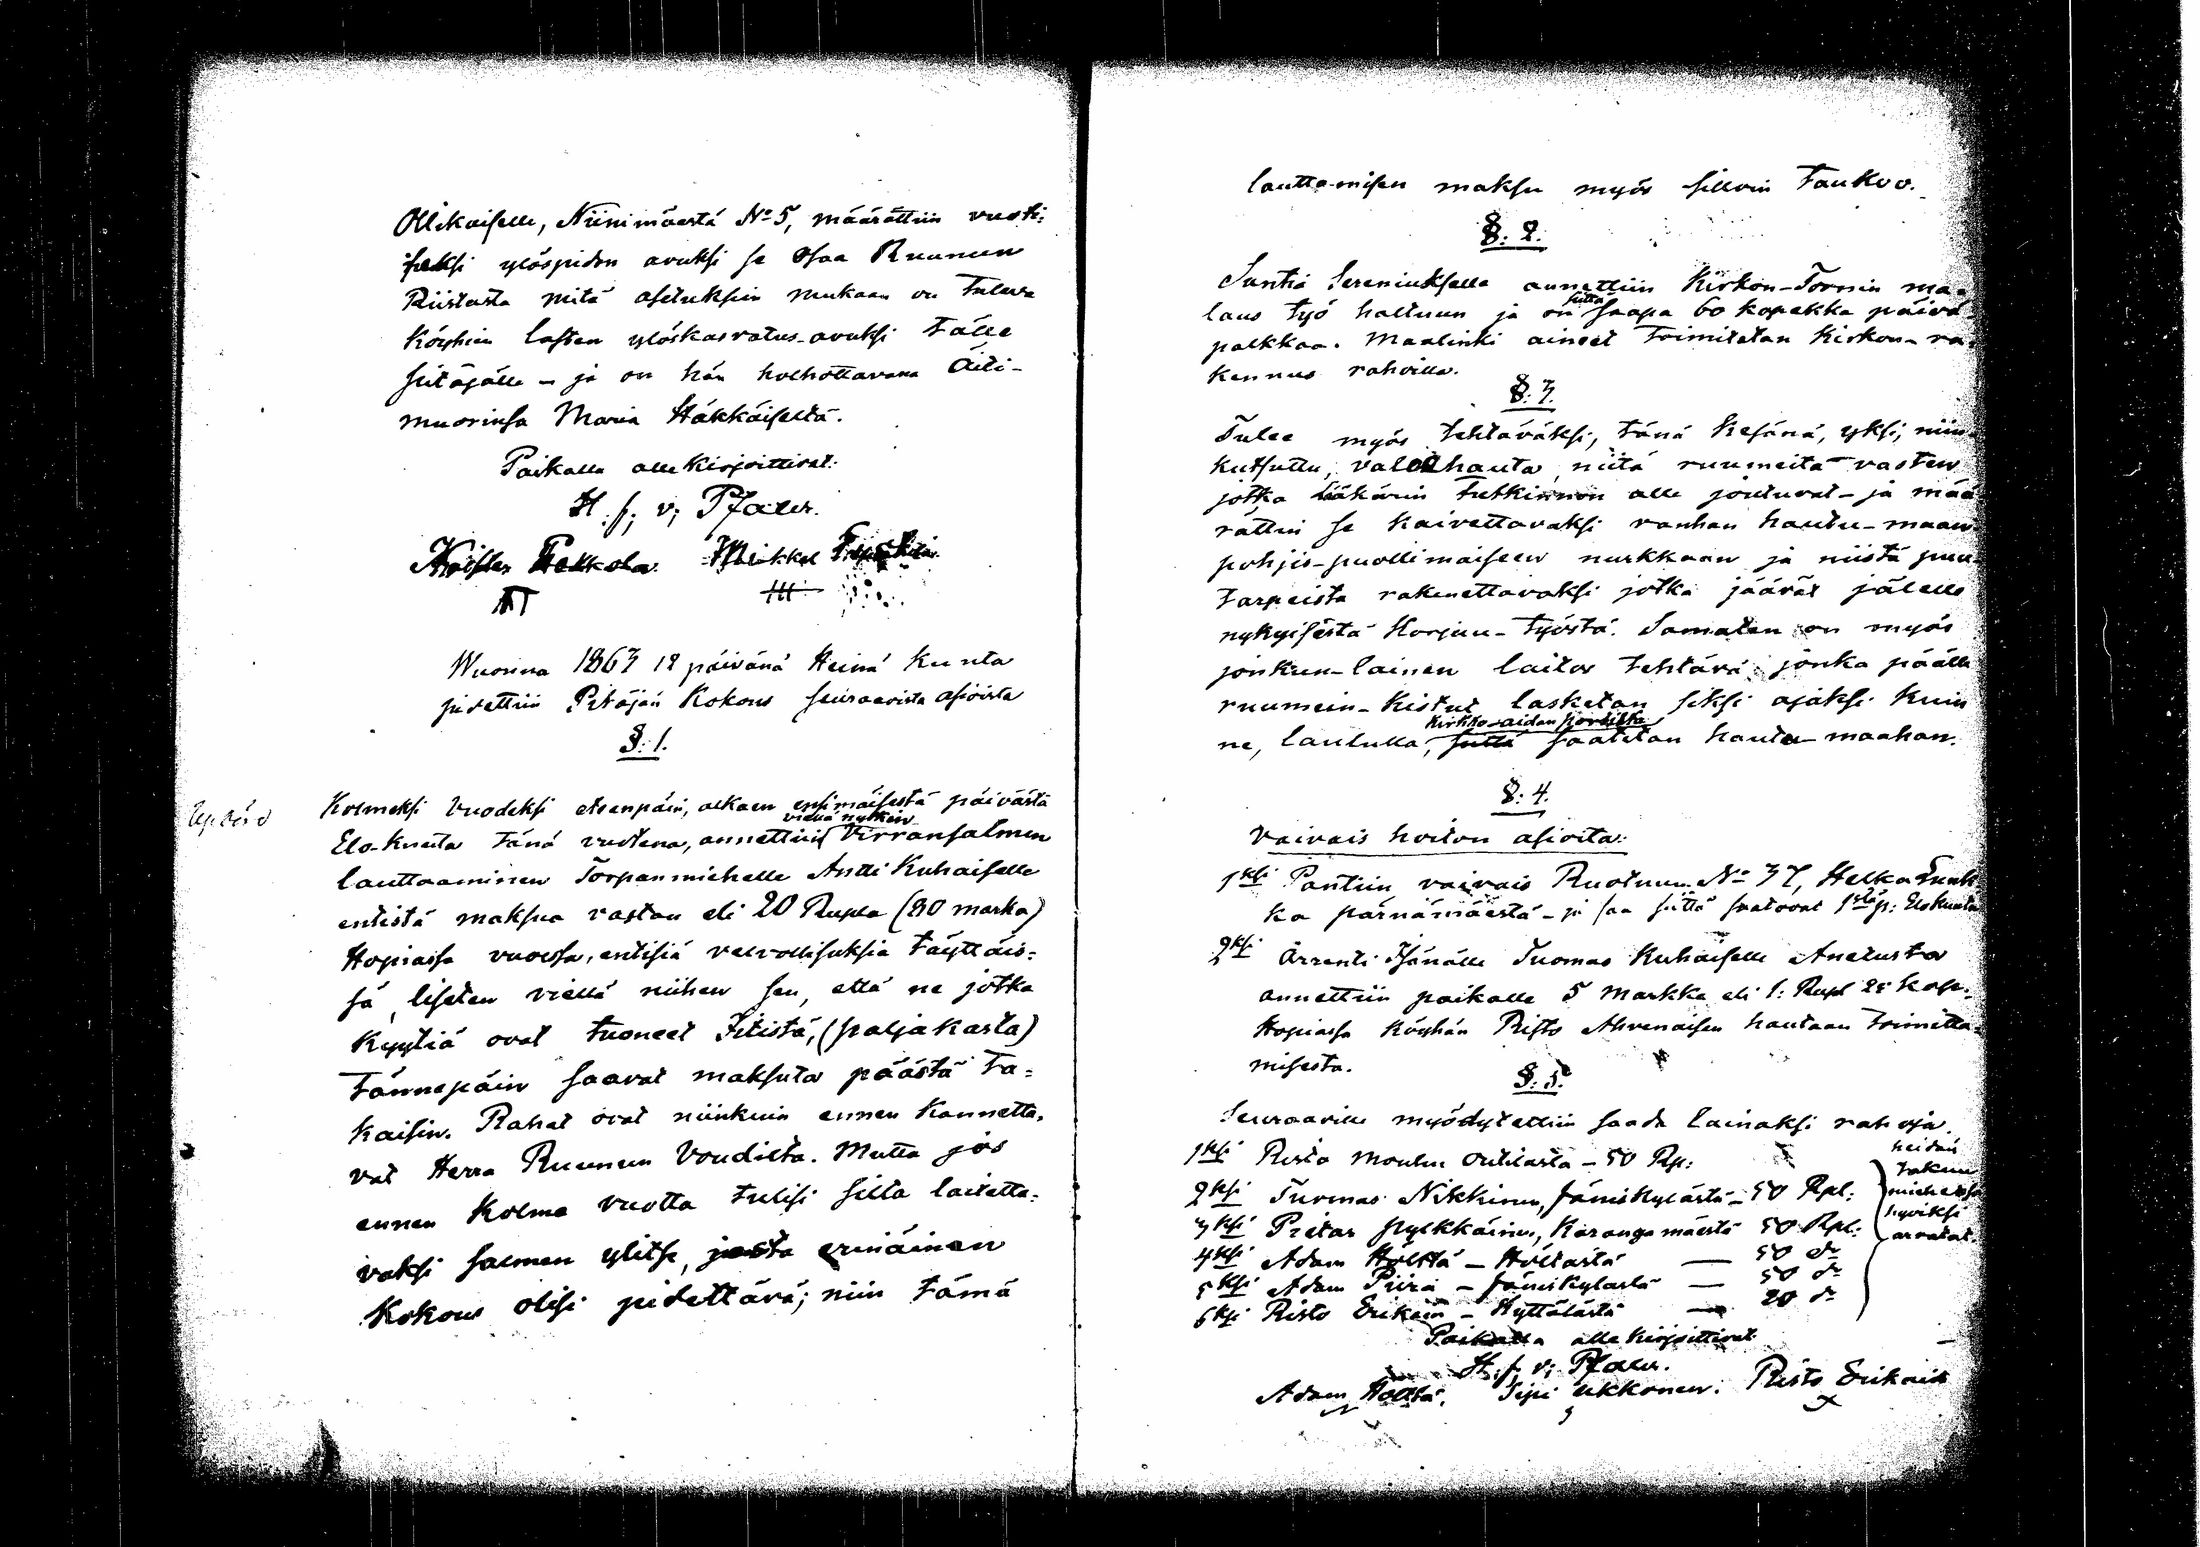 Ollikaiselle, Niinimäestä No 5, määrättiin vuoti-
seksi ylöspidon avuksi se osaa Ruunun
Riistasta mitä asetuksiin mukaan on tuleva
Köyhien lasten ylöskasvatus-avuksi tälle
sikiäjälle - ja on hän holhottavana Äiti-
muorinsa Maria Häkkäiseltä.
Paikalla alle Kirjoittivat:
H. f; v; Pfaler.
Pekkola. Mikkel
Wuonna 1863 12 päivänä Heinä Kuuta
pidettiin Pitäjän Kokous seuraavista asioista
§: 1.
Kolmeksi Vuodeksi etsenpäin, alkaen ensimäisestä päivästä
Elo-Kuuta tänä vuotena, annettiin vielä nytkin Virransalmen
lauttaaminen Torpanmiehelle Antti Kuhaiselle
entistä maksua vastan eli 20 Rupla (80 marka)
Hopiassa vuossa, entisiä velvollisuksia täyttäis-
sä, liseten viellä niihen sen, että ne jotka
Kyytiä ovat tuoneet Iitistä, (paljakasta)
tännepäin saavat maksuta päästä ta-
kaisin. Rahat ovat niinkuin ennen Kannetta-
vat Herra Ruunun Voudilta. Mutta jos
ennen Kolme vuotta tulisi silta laitetta-
vaksi salmen ylitse, josta erinäinen
Kokous olisi pidettävä; niin tämä
lauttamisen maksu myös silloin taukoo.
§: 2.
Suntia Sereniukselle annettiin Kirkon-Tornin ma-
laus työ haltuun ja on siitä saapa 60 kopekka päivä-
palkkaa. Maalinki aineet toimitetan Kirkon-ra-
kennus rahoilla.
§: 3.
Tulee myös tehtäväksi, tänä Kesänä, yksi, niin
kutsuttu, valehauta niitä ruumeita vasten
jotka lääkärin tutkinnon alle joutuvat - ja mää
rättiin se kaivettavaksi vanhan hautu-maan
pohjis-puollimaiseen nurkkaan ja niistä puu-
tarpeista rakenettavaksi jotka jäävät jälelle
nykyisestä Korjuu-työstä. Samaten on myös
jonkun-lainen laitos tehtävä jonka päälle
ruumein-Kistut lasketan siksi ajaksi kuin
ne, laululla, Kirkko-aidan portilta saatetan hauta-maahan.
§: 4.
Vaivais hoiton asioita:
1ksi Pantiin vaivais Ruotuun No 37, Helka
ka pärnämäestä - ja saa siitä saatavat 1stä p: Elokuuta
2ksi Arrenti Isänälle Tuomas Kuhaiselle Anetusta
annettiin paikalle 5 Markka eli 1: Rupl 25 kop:
Hopiassa Köyhän Risto Ahvenaisen hautaan toimitta-
misesta.
§: 5.
Seuraaville myödytettiin saada lainaksi rahoja.
1ksi Risto Moulu - 50 Rp:
2ksi Tuomas Nikkinen, Jäniskylästä - 50 Rpl:
3ksi Pietar Pylkkäinen, Karangamäestä 50 Rpl:
4ksi Adam Hölttä - Höltästä — 50 do
5ksi Adam Piira - Jäniskylästä — 50 do
6ksi Risto Erikain - Hyttälästä — 20 do
heidän
takuu
miehensä
hyviksi
arvatat.
Paikalla alle Kirjoittivat
H. f; v; Pfaler.
Adam Hölttä. Sipi Ukkonen. Risto Erikain